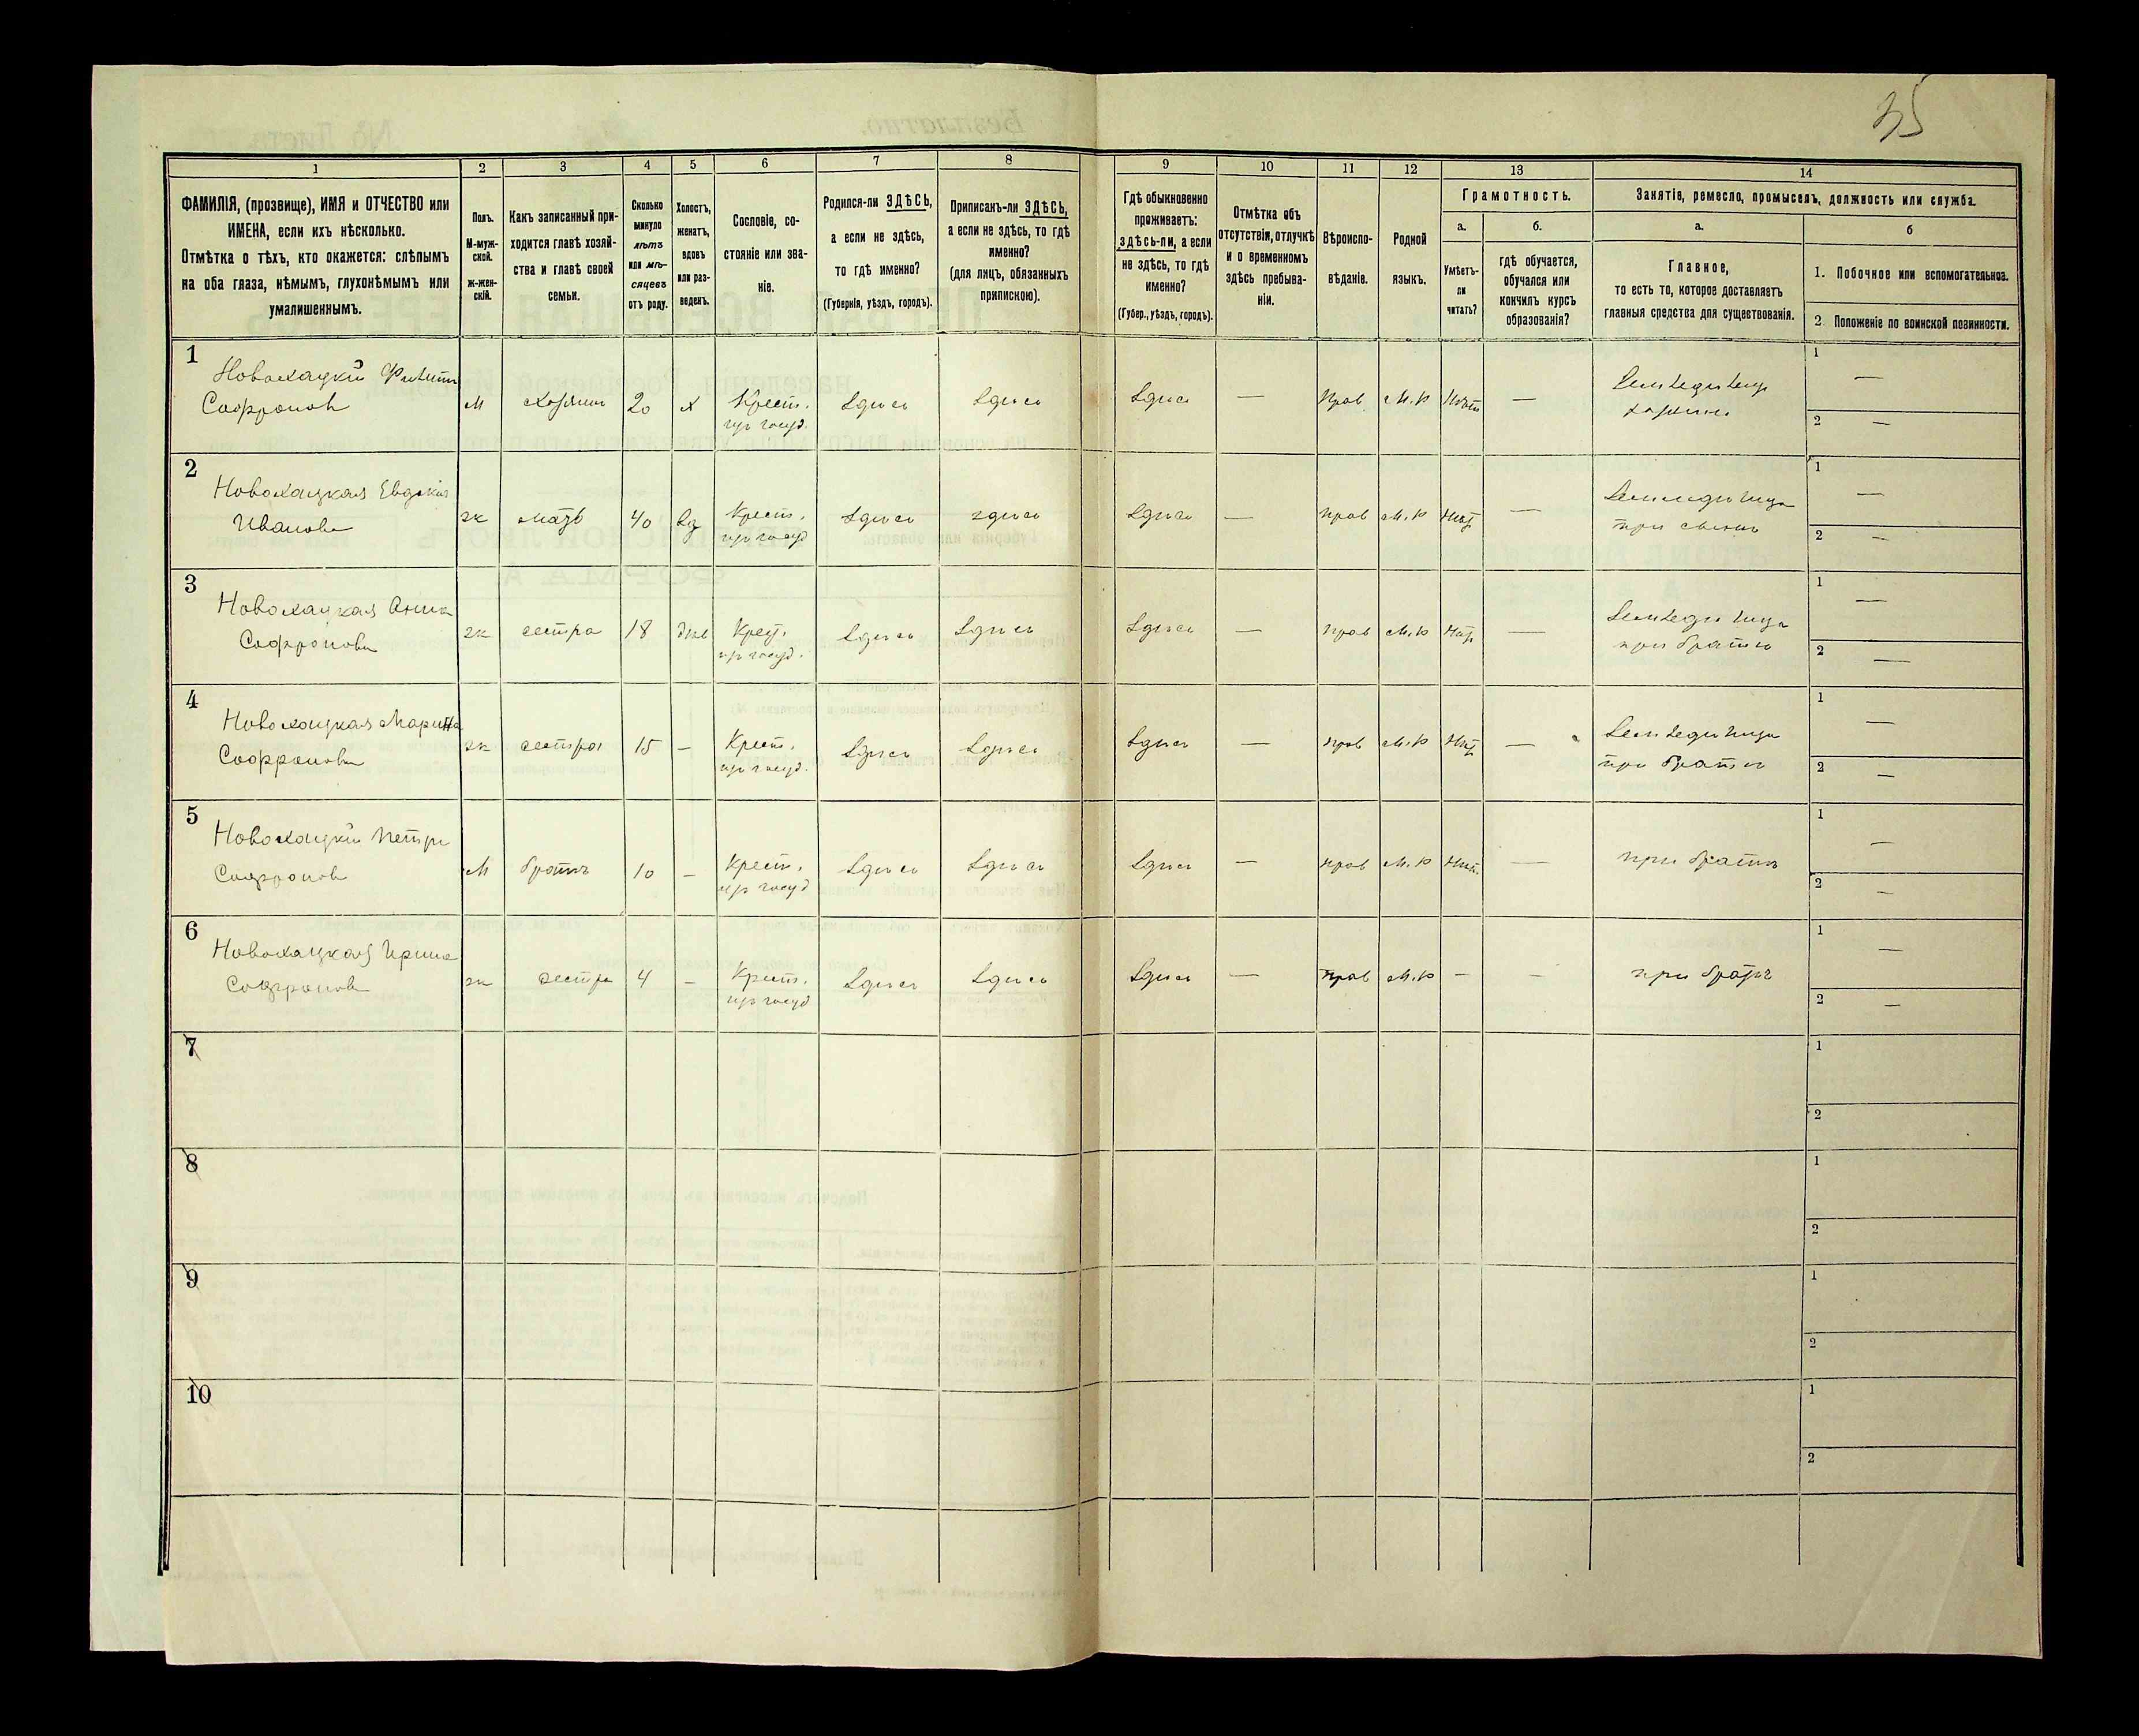 35
1 2 3 4 5 6 7 8 9 10 11 12 13 14
ФАМИЛІЯ, (прозвище), ИМЯ и ОТЧЕСТВО или
ИМЕНА, если ихъ нѣсколько.
Отмѣтка о тѣхъ, кто окажется: слѣпымъ
на оба глаза, нѣмымъ, глухонѣмымъ или
умалишеннымъ.
Полъ.
М-муж-
ской.
ж-жен-
скій.
Какъ записанный при-
ходится главѣ хозяй-
ства и главѣ своей
семьи.
Сколько
минуло
лѣтъ
или мѣ-
сяцевъ
отъ роду.
Холостъ,
женатъ,
вдовъ
или раз-
веденъ.
Сословіе, со-
стояніе или зва-
ніе.
Родился-ли ЗДѢСЬ,
а если не здѣсь,
то гдѣ именно?
(Губернія, уѣздъ, городъ).
Приписанъ-ли ЗДѢСЬ,
а если не здѣсь, то гдѣ
именно?
(для лицъ, обязанныхъ
припискою).
Гдѣ обыкновенно
проживаетъ:
здѣсь-ли, а если
не здѣсь, то гдѣ
именно?
(Губер., уѣздъ, городъ).
Отмѣтка объ
отсутствіи, отлучкѣ
и о временномъ
здѣсь пребыва-
ніи.
Вѣроиспо-
вѣданіе.
Родной
языкъ.
Грамотность.
а.
Умѣетъ-
ли
читать?
б.
гдѣ обучается,
обучался или
кончилъ курсъ
образованія?
Занятіе, ремесло, промыселъ, должность или служба.
а.
Главное,
то есть то, которое доставляетъ
главныя средства для существованія.
б
1. Побочное или вспомогательное.
2 Положеніе по воинской повинности.
1
Новохацкій Филипп
Софронов
М хозяин 20 х Крест. здѣсь здѣсь здѣсь — прав М.р нѣт —
из госуд.
Земледѣлец
хозяин
1 —
2 —
2
Новохацкая Евдокія
Иванова
ж мать 40 вд Крест. здѣсь здѣсь здѣсь — прав М.р нѣт —
из госуд
Земледѣлица
при сынѣ
1 —
2 —
3
Новохацкая Анна
Софронова
ж сестра 18 дѣв Крест. здѣсь здѣсь здѣсь — прав М.р нѣт —
из госуд.
Земледѣлица
при братѣ
1 —
2 —
4
Новохацкая Марина
Софронова
ж сестра 15 — Крест. здѣсь здѣсь здѣсь — прав М.р нѣт —
из госуд.
Земледѣлица
при братѣ
1 —
2 —
5
Новохацкій Петръ
Софронов
М братъ 10 — Крест. здѣсь здѣсь здѣсь — прав М.р нѣт. —
из госуд
при братѣ
1 —
2 —
6
Новохацкая Ирина
Софронова
ж сестра 4 — Крест. здѣсь здѣсь здѣсь — прав М.р — —
из госуд
при братѣ
1 —
2 —
7
1
2
8
1
2
9
1
2
10
1
2